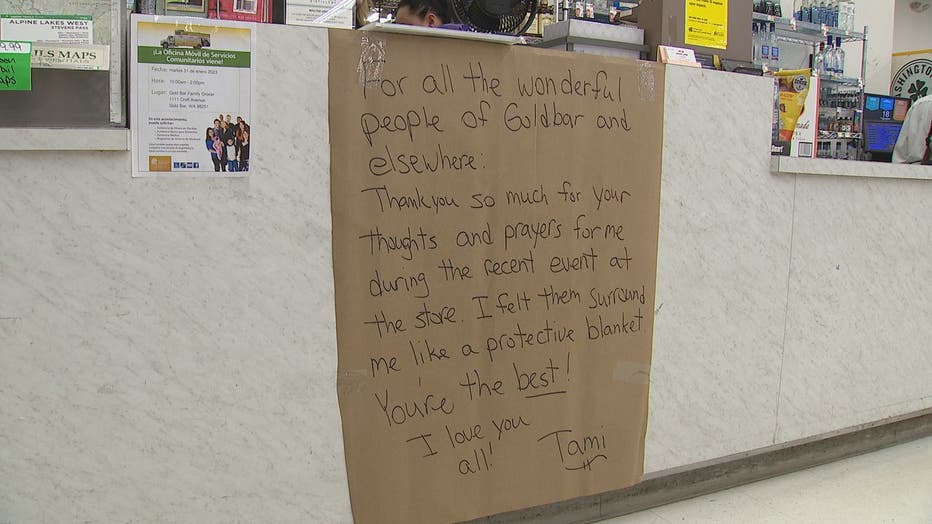 ALPINE LAKES WEST
STEVENS PASS
9.99
ILS MAPS
¡La Oficina Móvil de Servicios
Comunitarios viene!
Fecha: martes 31 de enero 2023
Hora: 10:00am - 2:00pm
Lugar: Gold Bar Family Grocer
1111 Croft Avenue
Gold Bar, WA 98251
For all the wonderful
people of Goldbar and
elsewhere:
Thank you so much for your
thoughts and prayers for me
during the recent event at
the store. I felt them surround
me like a protective blanket
You're the best!
I love you
all!
Tami
WASHINGTON
18